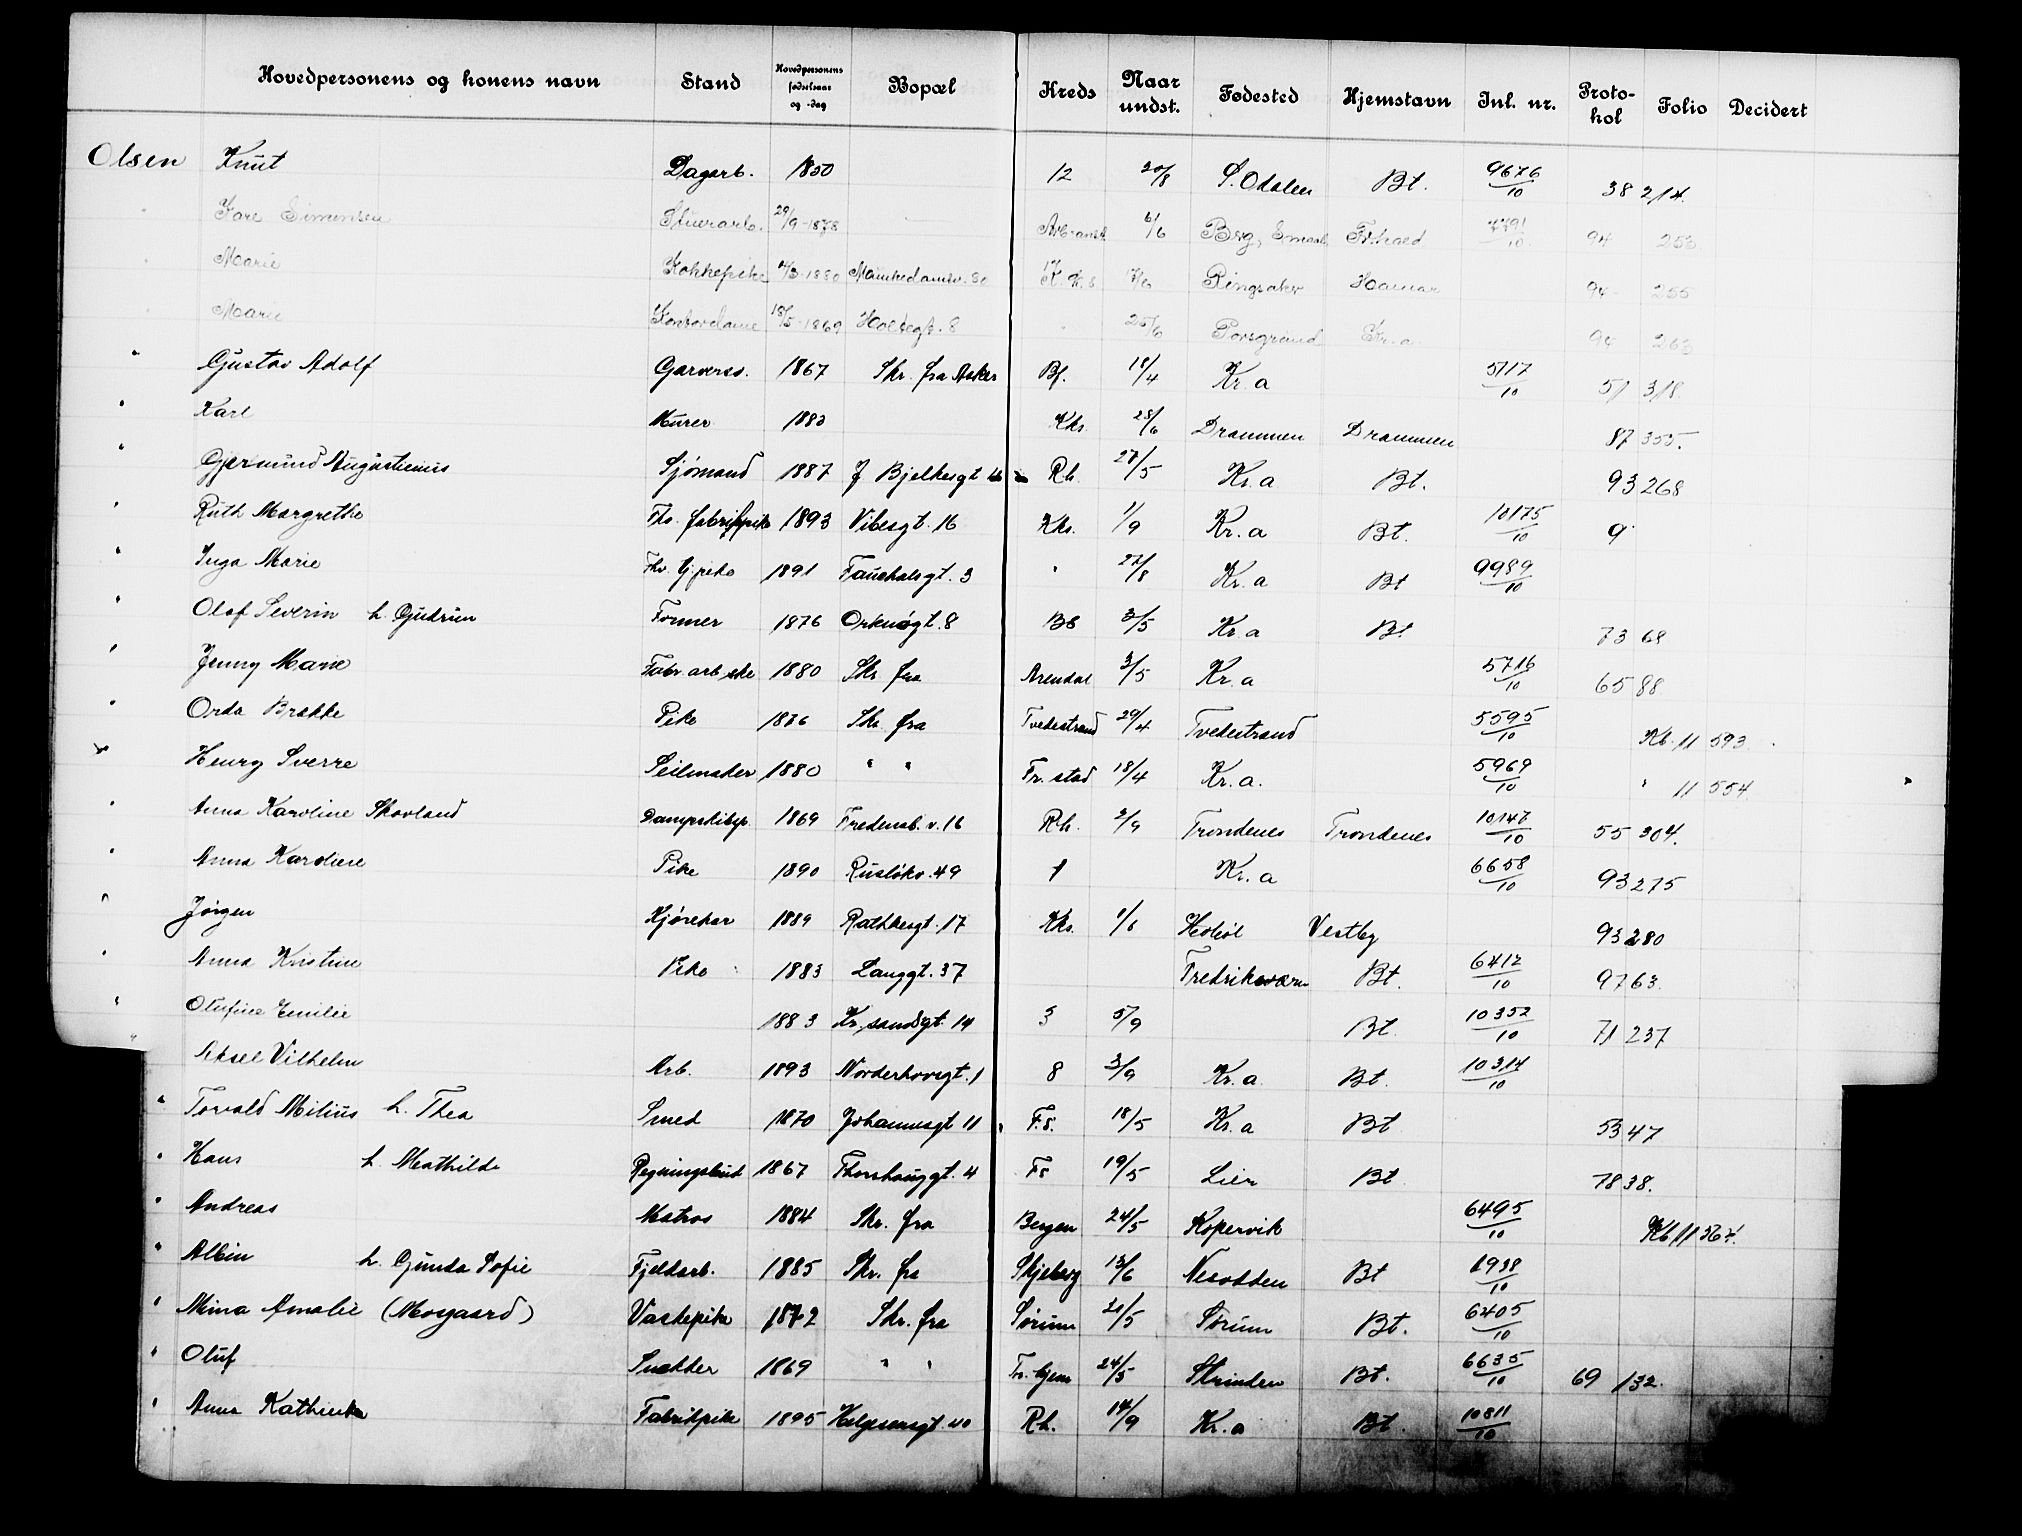 Hovedpersonens og konens navn Stand Hovedpersonens fødselsaar og -dag Bopæl Kreds Naar undst. Fødested Hjemstavn Inl. nr. Protokol Folio Decidert
Olsen Knut Dagarb. 1850 12 20/8 S. Odalen Bt. 9676/10 38 214.
" Kare Simonsen Stuerarb. 29/9-1878 6/6 94 253
" Marie Kokkepike 1880 17/6 Ringsaker Hamar 94 255
" Marie Kontordame 18/5-1869 Holtegt. 8 " 25/6 Porsgrund Kr.a 94 263
" Gustav Adolf Garversv. 1867 Skr. fra Asker Bf. 18/4 Kr.a 5117/10 51 318.
" Karl Murer 1883 Kks 28/6 Drammen Drammen 87 355.
" Gjermund Augustinius Sjømand 1887 J Bjelkesgt Rh. 27/5 Kr.a Bt. 93 268
" Ruth Margrethe Fhv. fabrikpike 1893 Vibesgt. 16 Kks. 1/9 Kr.a Bt. 10175/10 9
" Inga Marie Fhv. tj.pike 1891 Fauchalsgt. 3 " 27/8 Kr.a Bt 9989/10
" Olaf Severin h. Gudrun Former 1876 Orknøgt. 8 BB 3/5 Kr.a Bt 73 68
" Jenny Marie Fabr.arb.ske 1880 Skr. fra Arendal 3/5 Kr.a 5716/10 65 88
" Orda Brekke Pike 1876 Skr. fra Tvedestrand 29/4 Tvedestrand 5595/10 Kb. 11 593.
" Henry Sverre Seilmaker 1880 " " Fr.stad 18/4 Kr.a. 5969/10 " 11 554
" Anna Karoline Skovland Dampskibsp. 1869 Fredensb.v. 16 Rh. 2/9 Trondenes Trondenes 10147/10 55 304.
" Anna Karoline Pike 1890 Rusløkv. 49 1 Kr.a 6658/10 93 275
" Jørgen Kjørekar 1889 Rathkesgt. 17 Kks. 1/6 Hobøl Vestby 93 280
" Anna Kristine Pike 1883 Langgt. 37 Fredriksværn Bt. 6412/10 97 63.
" Olufine Emilie 1883 Kr.sandsgt. 14 3 5/9 Bt. 10352/10 71 237
" Aksel Vilhelm Arb. 1893 Norderhovsgt. 1 8 3/9 Kr.a Bt. 10314/10
" Torvald Milius h. Thea Smed 1870 Johannesgt 11 F.S. 18/5 Kr.a Bt 53 47
" Hans h. Mathilde Regningsbud 1867 Thorshauggt. 4 FS 19/5 Lier Bt 78 38.
" Andreas Matros 1884 Skr. fra Bergen 24/5 Kopervik 6495/10 Kb 11 567.
" Albin h. Gunda Sofie Fjeldarb. 1885 Skr. fra Skjeberg 13/6 Nesodden Bt 1938/10
" Mina Amalie (Mosgaard) Vaskepike 1872 Skr. fra Sørum 21/5 Sørum Bt. 6405/10
" Oluf Snekker 1869 " " Tr.hjem 24/5 Strinden Bt. 6635/10 69 132.
" Anna Kathinka Fabrikpike 1895 Helgesensgt. 40 Rh. 14/9 Kr.a Bt. 10811/10